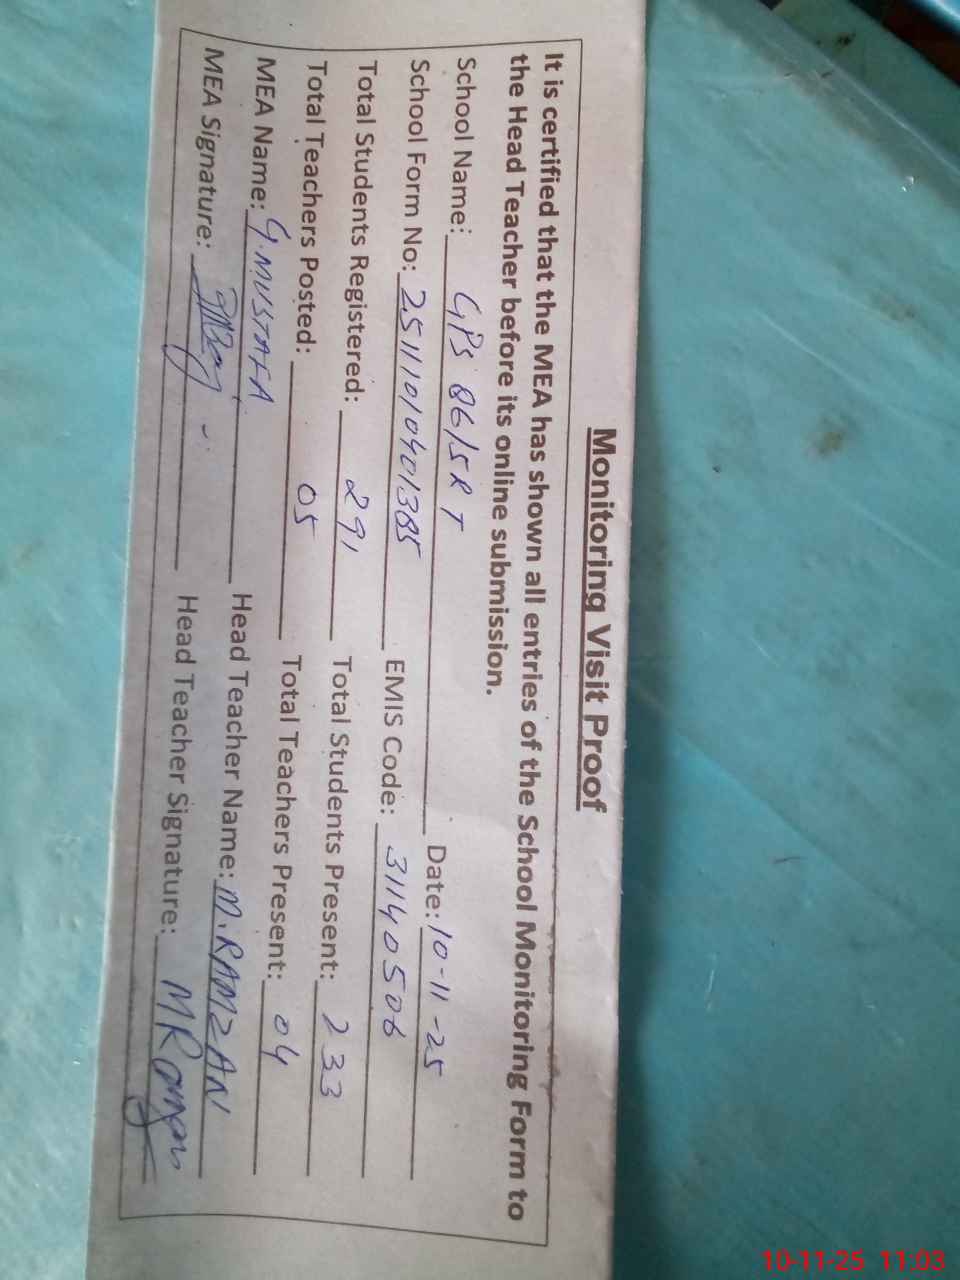 Monitoring Visit Proof
It is certified that the MEA has shown all entries of the School Monitoring Form to
the Head Teacher before its online submission.
School Name: GPS 86/5R T Date: 10-11-25
School Form No: 25111010401385 EMIS Code: 31140506
Total Students Registered: 291 Total Students Present: 233
Total Teachers Posted: 05 Total Teachers Present: 04
MEA Name: G.MUSTAFA Head Teacher Name: M.RAMZAN
MEA Signature: Head Teacher Signature: MRamzan
10-11-25 11:03